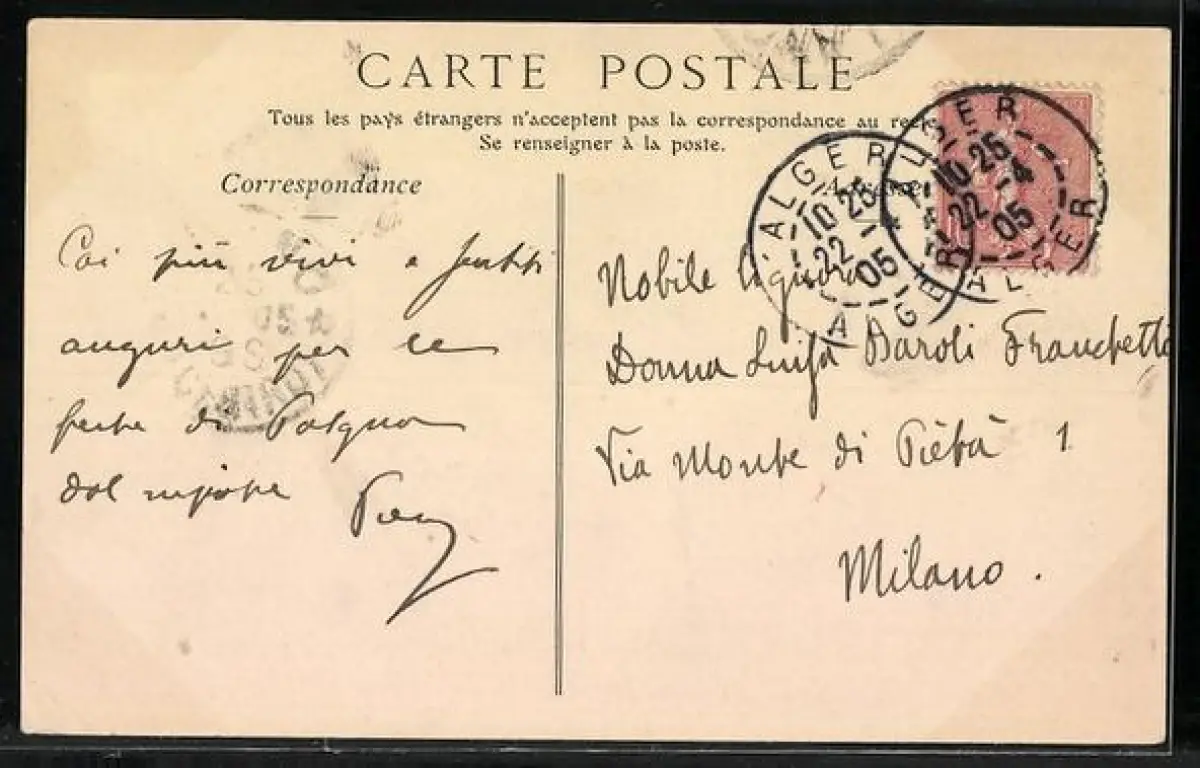 CARTE POSTALE
Tous les pays étrangers n'acceptent pas la correspondance au rec
Se renseigner à la poste.
Correspondance
Coi più vivi e
auguri per le
feste di Pasqua
dal nipote
Nobile Signora
Donna Luisa Baroli Franchetti
Via Monte di Pietà 1
Milano.
ALGER ALGER
10 25
22 -4
05
ALGER
10 25
22
05